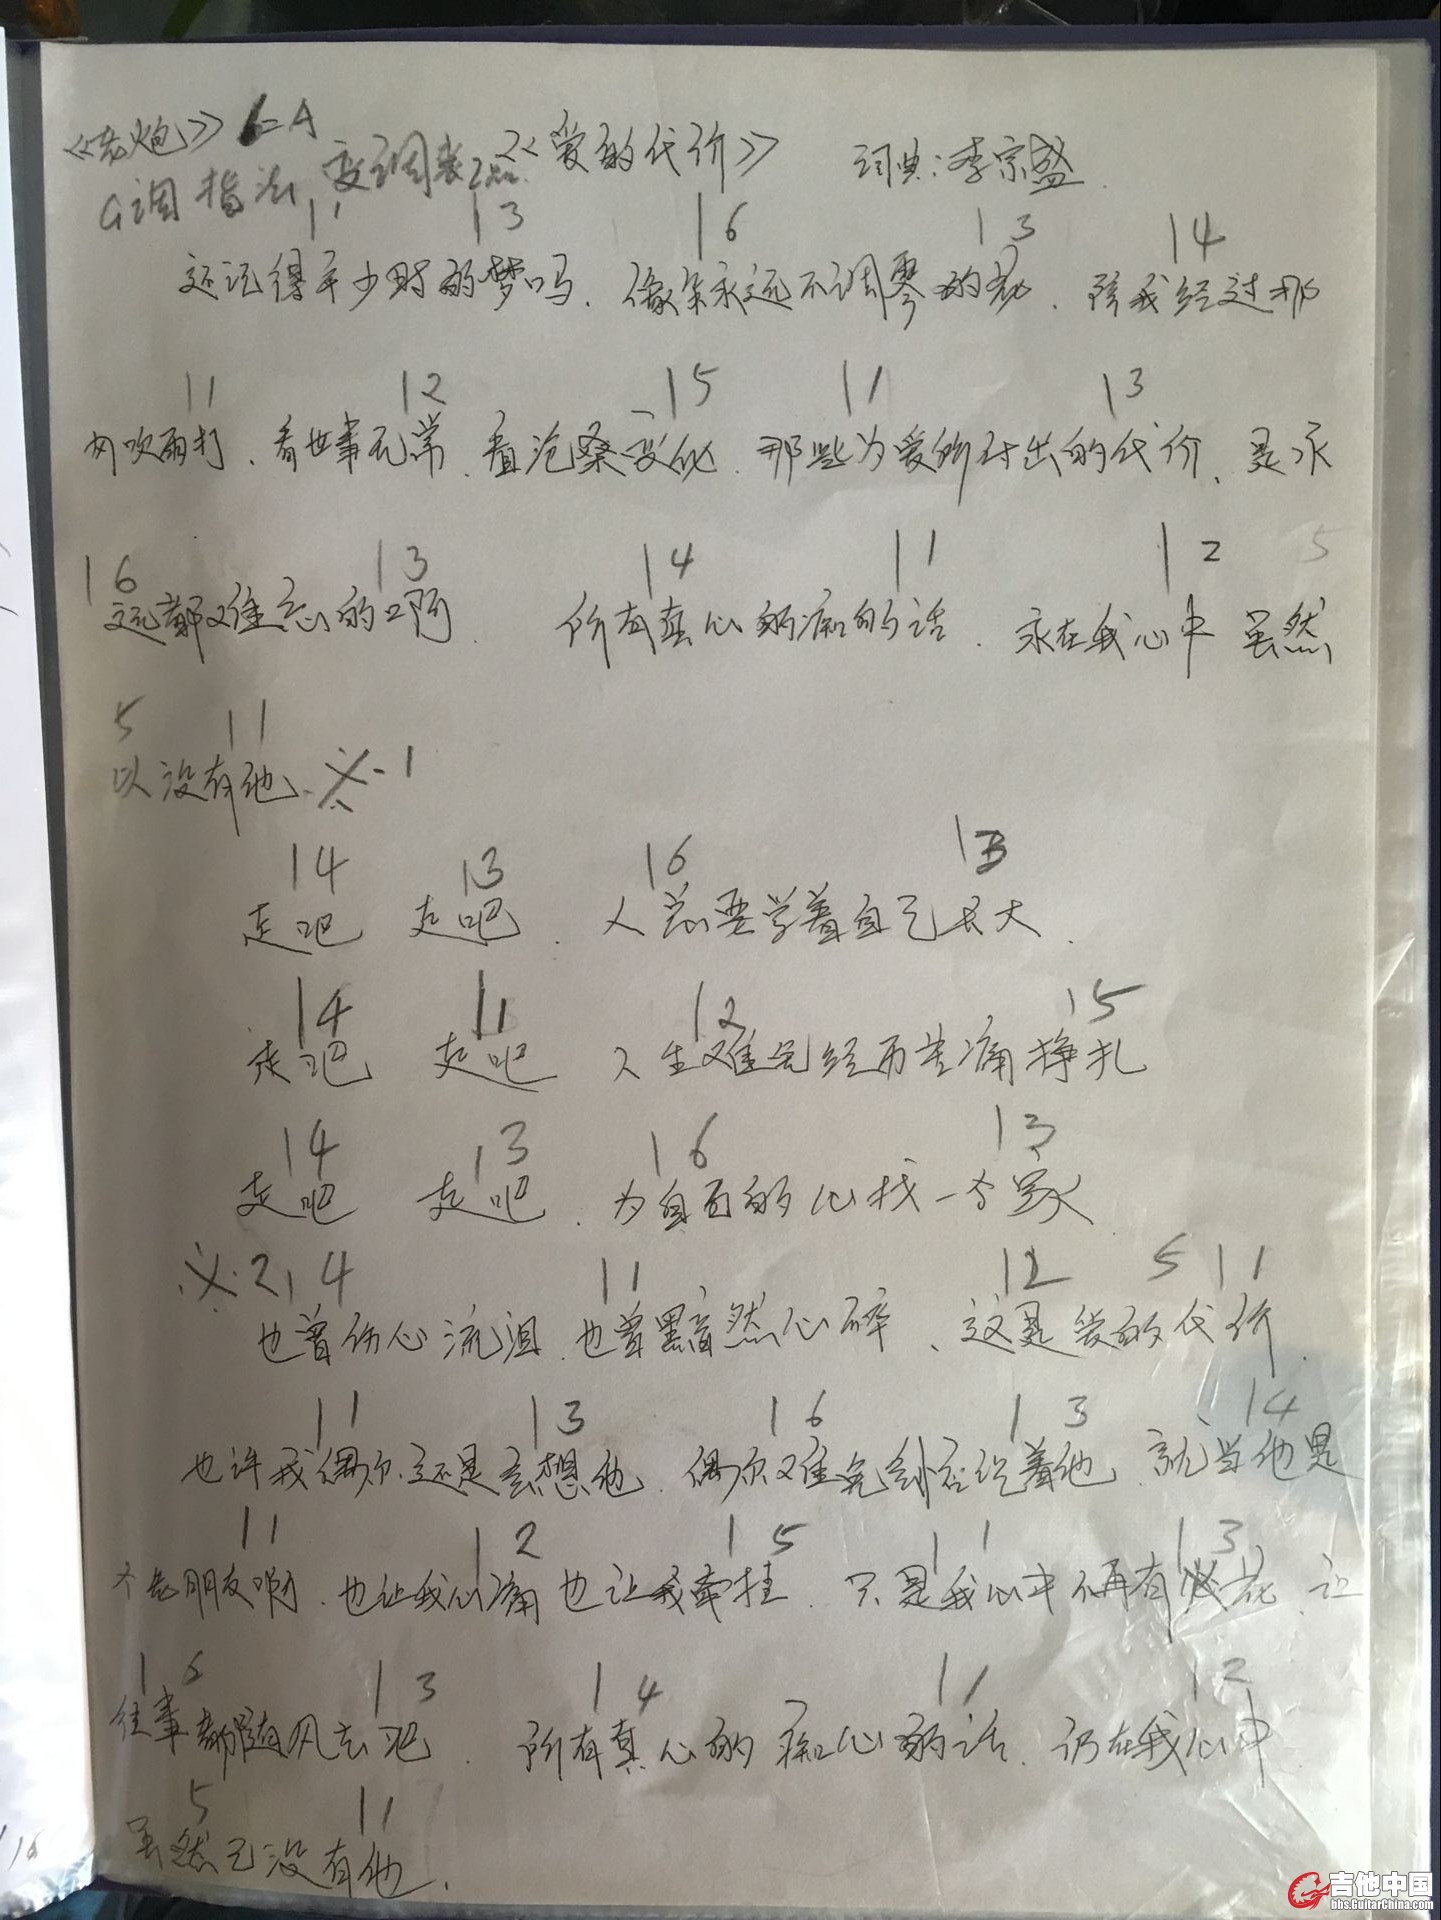 《老炮》 1=A
G调指法 变调夹2品 《爱的代价》 词典:李宗盛.
11 13 16 13 14
还记得年少时的梦吗、像朵永远不调零的花、陪我经过那
11 12 15 11 13
风吹雨打、看世事无常、看沧桑变化、那些为爱所付出的代价、是永
16 13 14 11 12 5
远都难忘的啊、 所有真心的痴的话、永在我心中 虽然
5 11
以没有他、※-1
14 13 16 13
走吧 走吧、人总要学着自己长大、
14 11 12 15
走吧 走吧 人生难免经历苦痛挣扎
14 13 16 13
走吧 走吧、为自己的心找一个家
※2 14 11 12 5 11
也曾伤心流泪、也曾黯然心碎、这是爱的代价、
11 13 16 13 14
也许我偶尔还是会想他、偶尔难免会惦记着他、就当他是
11 12 15 11 13
个老朋友啊、也让我心痛也让我牵挂、只是我心中不再有火花、让
16 13 14 11 12
往事都随风去吧、所有真心的痴心的话、仍在我心中
5 11
虽然已没有他、
16
吉他中国
bbs.GuitarChina.com